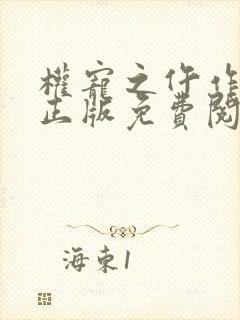 權寵之仵作
正版免費閱
海東1